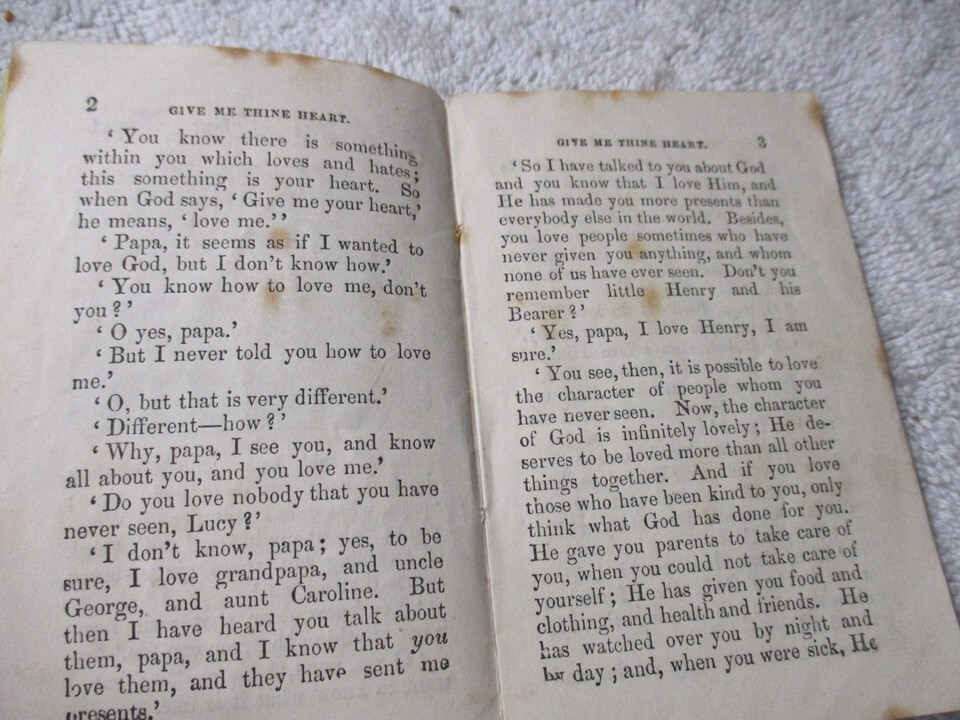 2 GIVE ME THINE HEART.
‘You know there is something
within you which loves and hates;
this something is your heart. So
when God says, ‘Give me your heart,’
he means, ‘love me.’’
‘Papa, it seems as if I wanted to
love God, but I don’t know how.’
‘You know how to love me, don’t
you?’
‘O yes, papa.’
‘But I never told you how to love
me.’
‘O, but that is very different.’
‘Different—how?’
‘Why, papa, I see you, and know
all about you, and you love me.’
‘Do you love nobody that you have
never seen, Lucy?’
‘I don’t know, papa; yes, to be
sure, I love grandpapa, and uncle
George, and aunt Caroline. But
then I have heard you talk about
them, papa, and I know that you
love them, and they have sent me
presents.’
GIVE ME THINE HEART. 3
‘So I have talked to you about God
and you know that I love Him, and
He has made you more presents than
everybody else in the world. Besides,
you love people sometimes who have
never given you anything, and whom
none of us have ever seen. Don’t you
remember little Henry and his
Bearer?’
‘Yes, papa, I love Henry, I am
sure.’
‘You see, then, it is possible to love
the character of people whom you
have never seen. Now, the character
of God is infinitely lovely; He de-
serves to be loved more than all other
things together. And if you love
those who have been kind to you, only
think what God has done for you.
He gave you parents to take care of
you, when you could not take care of
yourself; He has given you food and
clothing, and health and friends. He
has watched over you by night and
by day; and, when you were sick, He